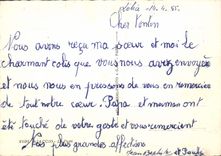 14.4.55.
Cher Tonton
Nous avons reçu ma sœur et moi le
charmant colis que vous avez envoyé
et nous nous en pressons de vous en remercier
de tout notre cœur. Papa et maman ont
été touché de votre geste et vous remercient
Nos plus grandes affections
et